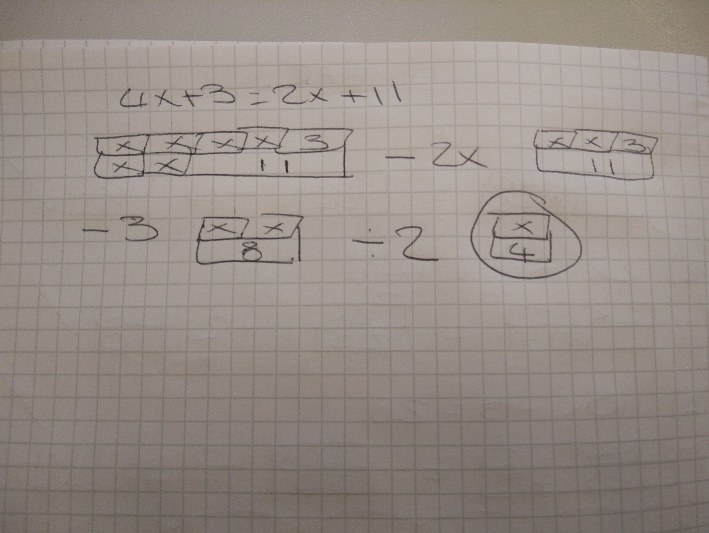 4x+3=2x+11
x x x x 3 
x x 11 - 2x x x 3
11
-3 x x ÷2 x
8 4